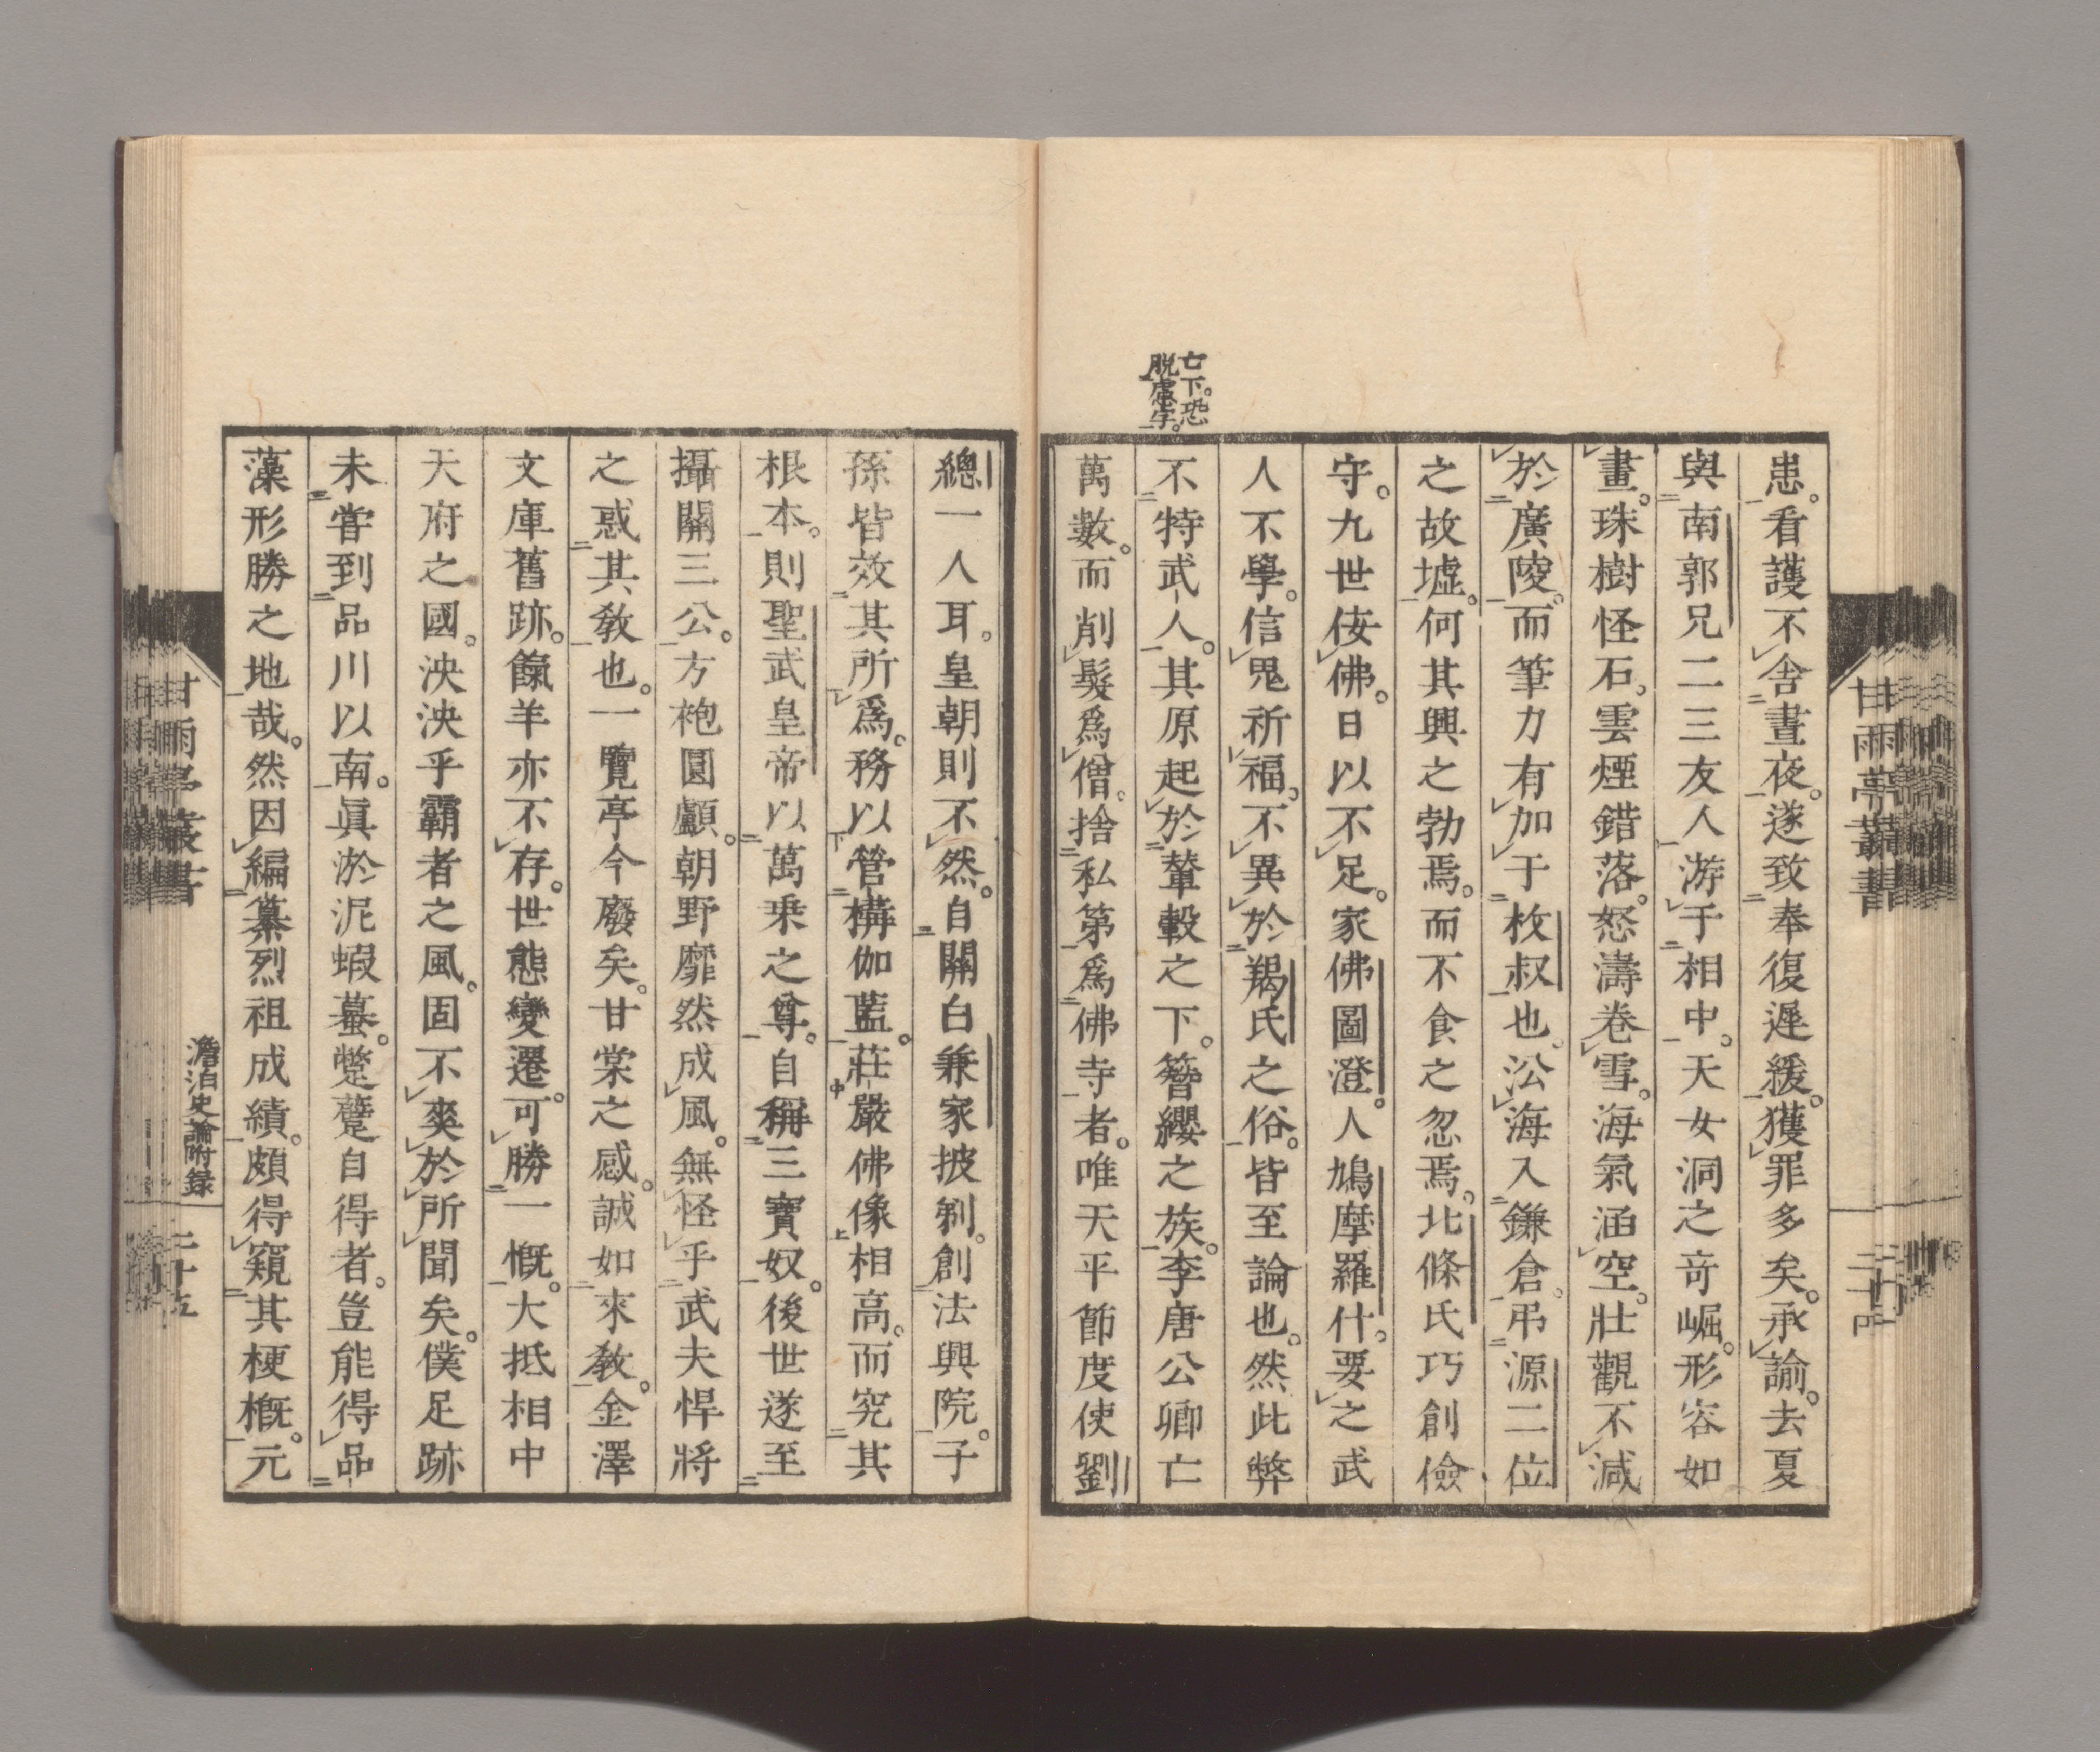 甘雨亭叢書
二十四
患。看護不舎晝夜。遂致奉復遲緩。獲罪多矣。承諭。去夏
與南郭兄二三友人游于相中。天女洞之奇崛。形容如
畫。珠樹怪石。雲煙錯落。怒濤卷雪。海氣涵空。壯觀不減
於廣陵。而筆力有加于枚叔也。㳂海入鎌倉。弔源二位
之故墟。何其興之勃焉。而不食之忽焉。北條氏巧創儉
守。九世佞佛。日以不足。家佛圖澄。人鳩摩羅什。要之武
人不學。信鬼祈福。不異於羯氏之俗。皆至論也。然此弊
亡下。恐
脱慮字。
不特武人。其原起於輦轂之下。簪纓之族。李唐公卿亡
萬數。而削髮爲僧。捨私第爲佛寺者。唯天平節度使劉
總一人耳。皇朝則不然。自關白兼家披剃。創法興院。子
孫皆效其所爲。務以管構伽藍。莊嚴佛像相高。而究其
根本。則聖武皇帝以萬乗之尊。自稱三寶奴。後世遂至
攝關三公。方袍圓顱。朝野靡然成風。無怪乎武夫悍將
之惑其教也。一覽亭今廢矣。甘棠之感。誠如來教。金澤
文庫舊跡。餼羊亦不存。世態變遷。可勝一慨。大抵相中
天府之國。泱泱乎霸者之風。固不爽於所聞矣。僕足跡
未甞到品川以南。眞淤泥蝦蟇。蹩躠自得者。豈能得品
藻形勝之地哉。然因編纂烈祖成績。頗得窺其梗槪。元
甘雨亭叢書
澹泊史論附録
二十五